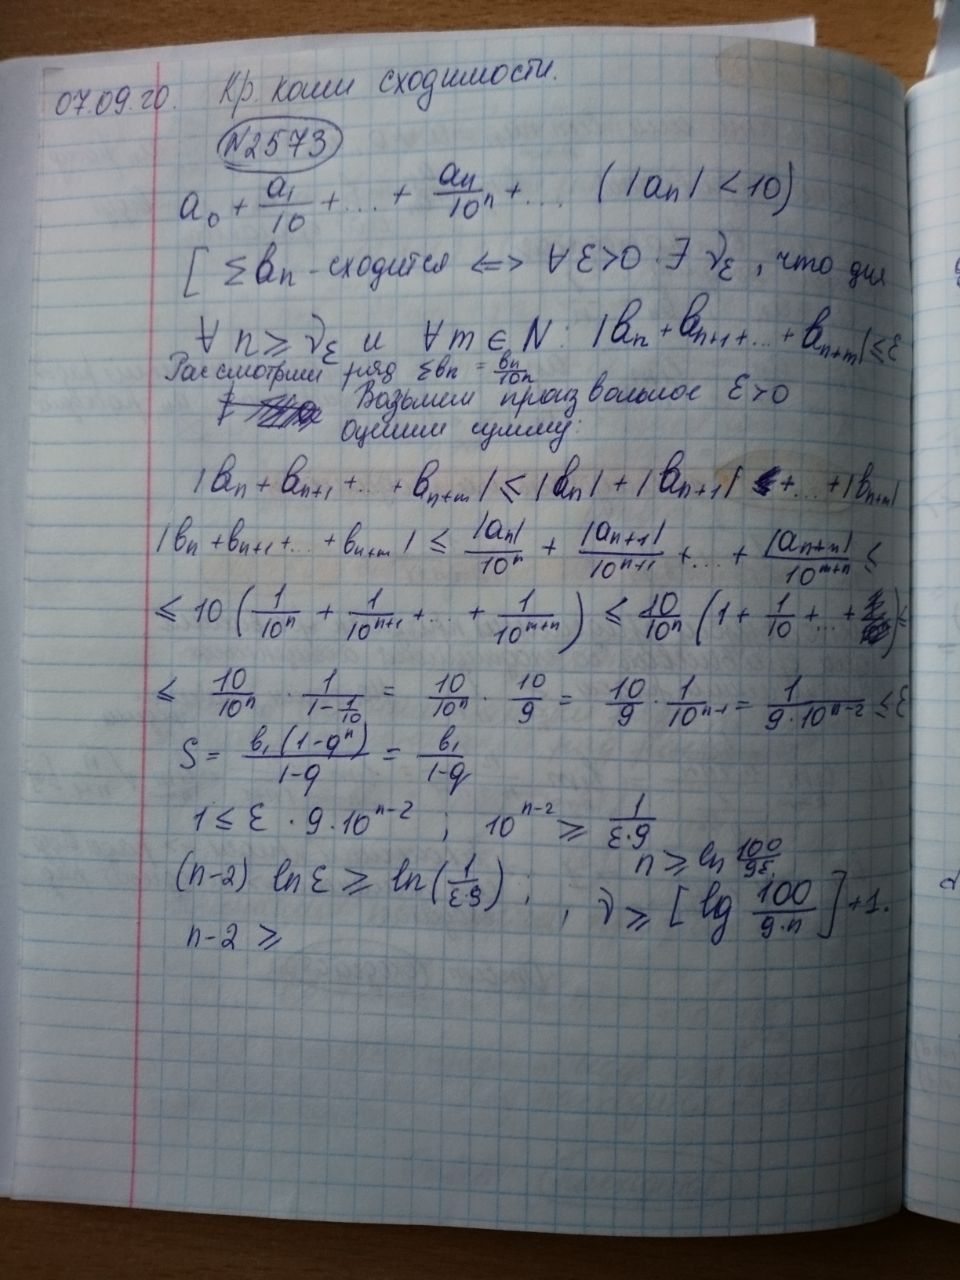 07.09.20. Кр. Коши сходимости.
N2573
a₀ + a₁/10 + ... + aₙ/10ⁿ + ... (|aₙ| < 10)
[ Σbₙ - сходится ⇔ ∀ ε>0 ∃ ν_ε, что для
∀ n ≥ ν_ε и ∀ m ∈ N: |bₙ + bₙ₊₁ + ... + bₙ₊ₘ| ≤ ε
Рассмотрим ряд Σbₙ = bₙ/10ⁿ
Возьмем произвольное ε>0
оценим сумму:
|bₙ + bₙ₊₁ + ... + bₙ₊ₘ| ≤ |bₙ| + |bₙ₊₁| + ... + |bₙ₊ₘ|
|bₙ + bₙ₊₁ + ... + bₙ₊ₘ| ≤ |aₙ|/10ⁿ + |aₙ₊₁|/10ⁿ⁺¹ + ... + |aₙ₊ₙ|/10ᵐ⁺ⁿ ≤
≤ 10 (1/10ⁿ + 1/10ⁿ⁺¹ + ... + 1/10ᵐ⁺ⁿ) ≤ 10/10ⁿ (1 + 1/10 + ... + ) ≤
≤ 10/10ⁿ · 1/(1-1/10) = 10/10ⁿ · 10/9 = 10/9 · 1/10ⁿ⁻¹ = 1/(9·10ⁿ⁻²) ≤ ε
S = b₁(1-qⁿ)/(1-q) = b₁/(1-q)
1 ≤ ε · 9 · 10ⁿ⁻² ; 10ⁿ⁻² ≥ 1/(ε·9)
n ≥ ln 100/9ε
(n-2) ln ε ≥ ln(1/(ε·9)) ; , ν ≥ [lg 100/(9·n)] + 1.
n-2 ≥